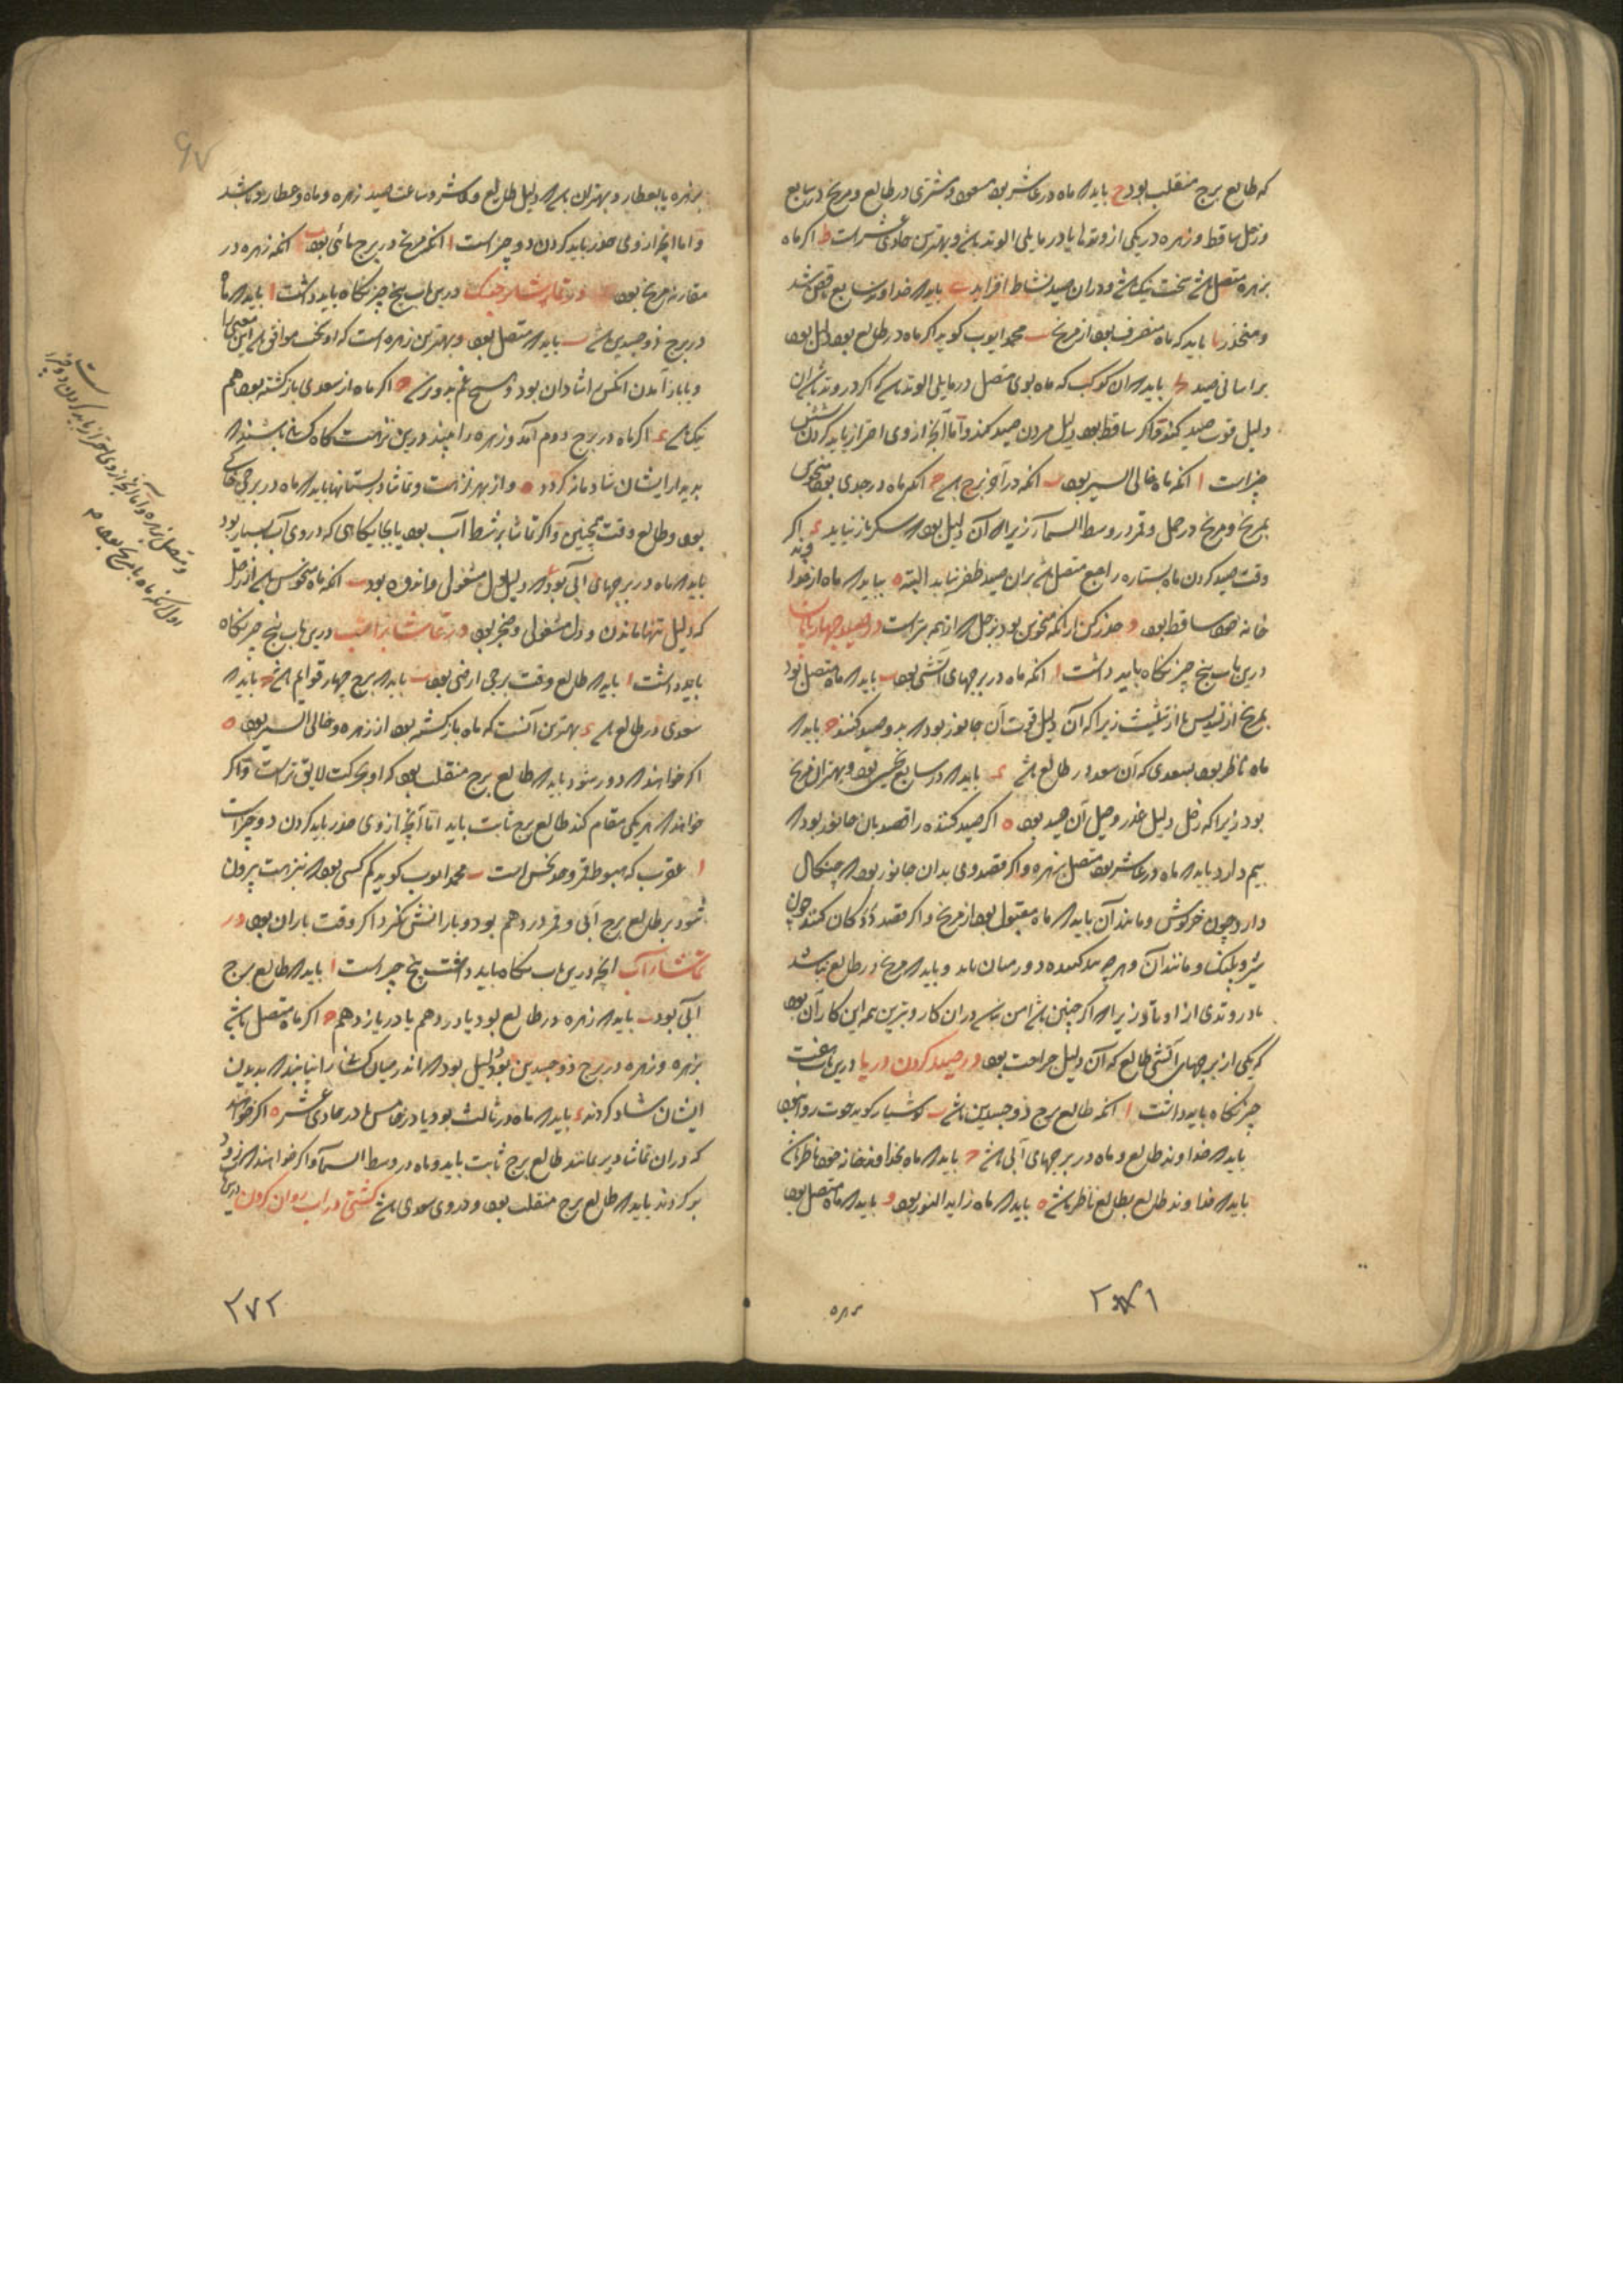 که طالع برج منقلب بود ح باید که ماه در عاشر بود مسعود و مشتری در طالع و مریخ در سابع
و زحل ساقط و زهره در یکی از وتدها یا در مایلی الوتد باشد و بهترین حادی عشر است ط اگر ماه
بزهره متصل باشد سخت نیک باشد و در آن صید نشاط افزاید ی باید که خداوند سابع ناقص باشد
و منحدر یا باید که ماه منصرف بود از مریخ یب محمد ایوب کوید اگر ماه در طالع بود دلیل بود
بر آسانی صید باید که آن کوکب که ماه بوی متصل در مایلی الوتد باشد که اگر در وتد باشد آن
دلیل قوت صید کند و اگر ساقط بود دلیل مردن صید کند و اما آنچه از وی احتراز باید کردن شش
چیز است ا آنکه ماه خالی السیر بود ب آنکه در آخر برج باشد ج آنکه ماه در جدی بود منحوس
بمریخ و مریخ در حمل و قمر در وسط السماء زیرا که آن دلیل بود که شکر باز نیاید د اگر
وقت صید کردن ماه بستاره راجع متصل باشد بر آن صید ظفر نیابد البته ه بباید که ماه از خداوند
خانه خود ساقط بود و حذر کن از آنکه منحوس بود بزحل که از همه بتر است در صید چهارپایان
درین باب پنج چیز نگاه باید داشت ا آنکه ماه در برجهای آتشی بود ب باید که ماه متصل بود
بمریخ از تسدیس یا از تثلیث زیرا که آن دلیل قوت آن جانور بود که بدو صید کنند ج باید که
ماه ناظر بود بسعدی که آن سعد در طالع باشد د باید که در سابع نحسی بود و بهتر آن مریخ
بود زیرا که زحل دلیل غدر و حیل آن صید بود ه اگر صید کننده را قصد بآن جانور بود که
بیم دارد باید که ماه در عاشر بود متصل بزهره و اگر قصد وی بدان جانور بود که چنگال
دارد چون خرگوش و مانند آن باید که ماه مقبول بود از مریخ و اگر قصد ددگان کنند چون
شیر و پلنگ و مانند آن و هر چه و باید که مریخ در طالع نباشد
یا در وتدی از اوتاد زیرا که اگر چنین باشد امن نباشد در آن کار و بترین همه این کار آن بود
که یکی از برجهای آتشی طالع که آن دلیل جراحت بود در صید کردن دریا درین باب هفت
چیز نگاه باید داشت ا آنکه طالع برج ذو جسدین باشد ب کوشیار کوید حوت روا بود
باید که خداوند طالع و ماه در برجهای آبی باشد ج باید که ماه بخداوند خانه خود ناظر باشد
باید که خداوند طالع بطالع ناظر باشد ه باید که ماه زاید النور بود و باید که ماه متصل بود
بزهره
۲۷۱
بزهره یا بعطارد و بهتر آن باشد که دلیل طالع و عاشر و ساعت صید زهره و ماه و عطارد باشد
و اما آنچه از وی حذر باید کردن دو چیز است ا آنکه مریخ در برج مائی بود ب آنکه زهره در
مقارنه مریخ بود در تماشا درین باب پنج چیز نگاه باید داشت ا باید که ماه
در برج ذو جسدین باشد ب باید که متصل بود و بهترین زهره است که او سخت موافق باشد این معنی را
و بباز آمدن آنکس را شادان بود و هیچ غم بدو نرسد ج اگر ماه از سعدی بازگشته بود هم
نیک باشد د اگر ماه در برج دوم آمد و زهره را بیند درین نزهت گاه کسانی باشند که
بدیدار ایشان شادمانه گردد ه و از بهر نزهت و تماشا در بستانها باید که ماه در برجی خاکی
بود و طالع وقت همچنین و اگر تماشا بر شط آب بود یا بجایگاهی که در وی آب بسیار بود
باید که ماه در برجهای آبی بود که دلیل دل مشغولی و اندوه بود ب آنکه ماه منحوس باشد از زحل
که دلیل تنها ماندن و دل مشغولی و ضجر بود در تماشا بر اسب درین باب پنج چیز نگاه
باید داشت ا باید که طالع وقت برجی ارضی بود ب باید که برج چهار قوایم باشد ج باید که
سعدی در طالع باشد د بهترین آنست که ماه بازگشته بود از زهره و خالی السیر بود ه
اگر خواهند که دور شود باید که طالع برج منقلب بود که او بحرکت لایق تر است و اگر
خواهند که یکی مقام کند طالع برج ثابت باید اما آنچه از وی حذر باید کردن دو چیز است
ا عقرب که هبوط قمر و حد نحس است ب محمد ایوب کوید کم کسی بود که بنزهت بیرون
شود بر طالع برج آبی و قمر در دهم بود و بارانش نگیرد اگر وقت باران بود در
تماشا در آب آنچه درین باب نگاه باید داشت پنج چیز است ا باید که طالع برج
آبی بود ب باید که زهره در طالع بود یا در دهم یا در یازدهم ج اگر ماه متصل باشد
بزهره و زهره در برج ذو جسدین بود دلیل بود که اندر میان کسان را بیابند که بدیدن
ایشان شاد گردند د باید که ماه در ثالث بود یا در خامس یا در حادی عشر ه اگر خواهند
که در آن تماشا دیر بمانند طالع برج ثابت باید و ماه در وسط السماء و اگر خواهند که زود
برگردند باید که طالع برج منقلب بود و در وی سعدی باشد کشتی در آب روان کردن درین
و متصل بزهره و اما آنچه از وی احتراز باید کردن دو چیز است
اول آنکه ماه با مریخ بود
۲۷۲
۶۷